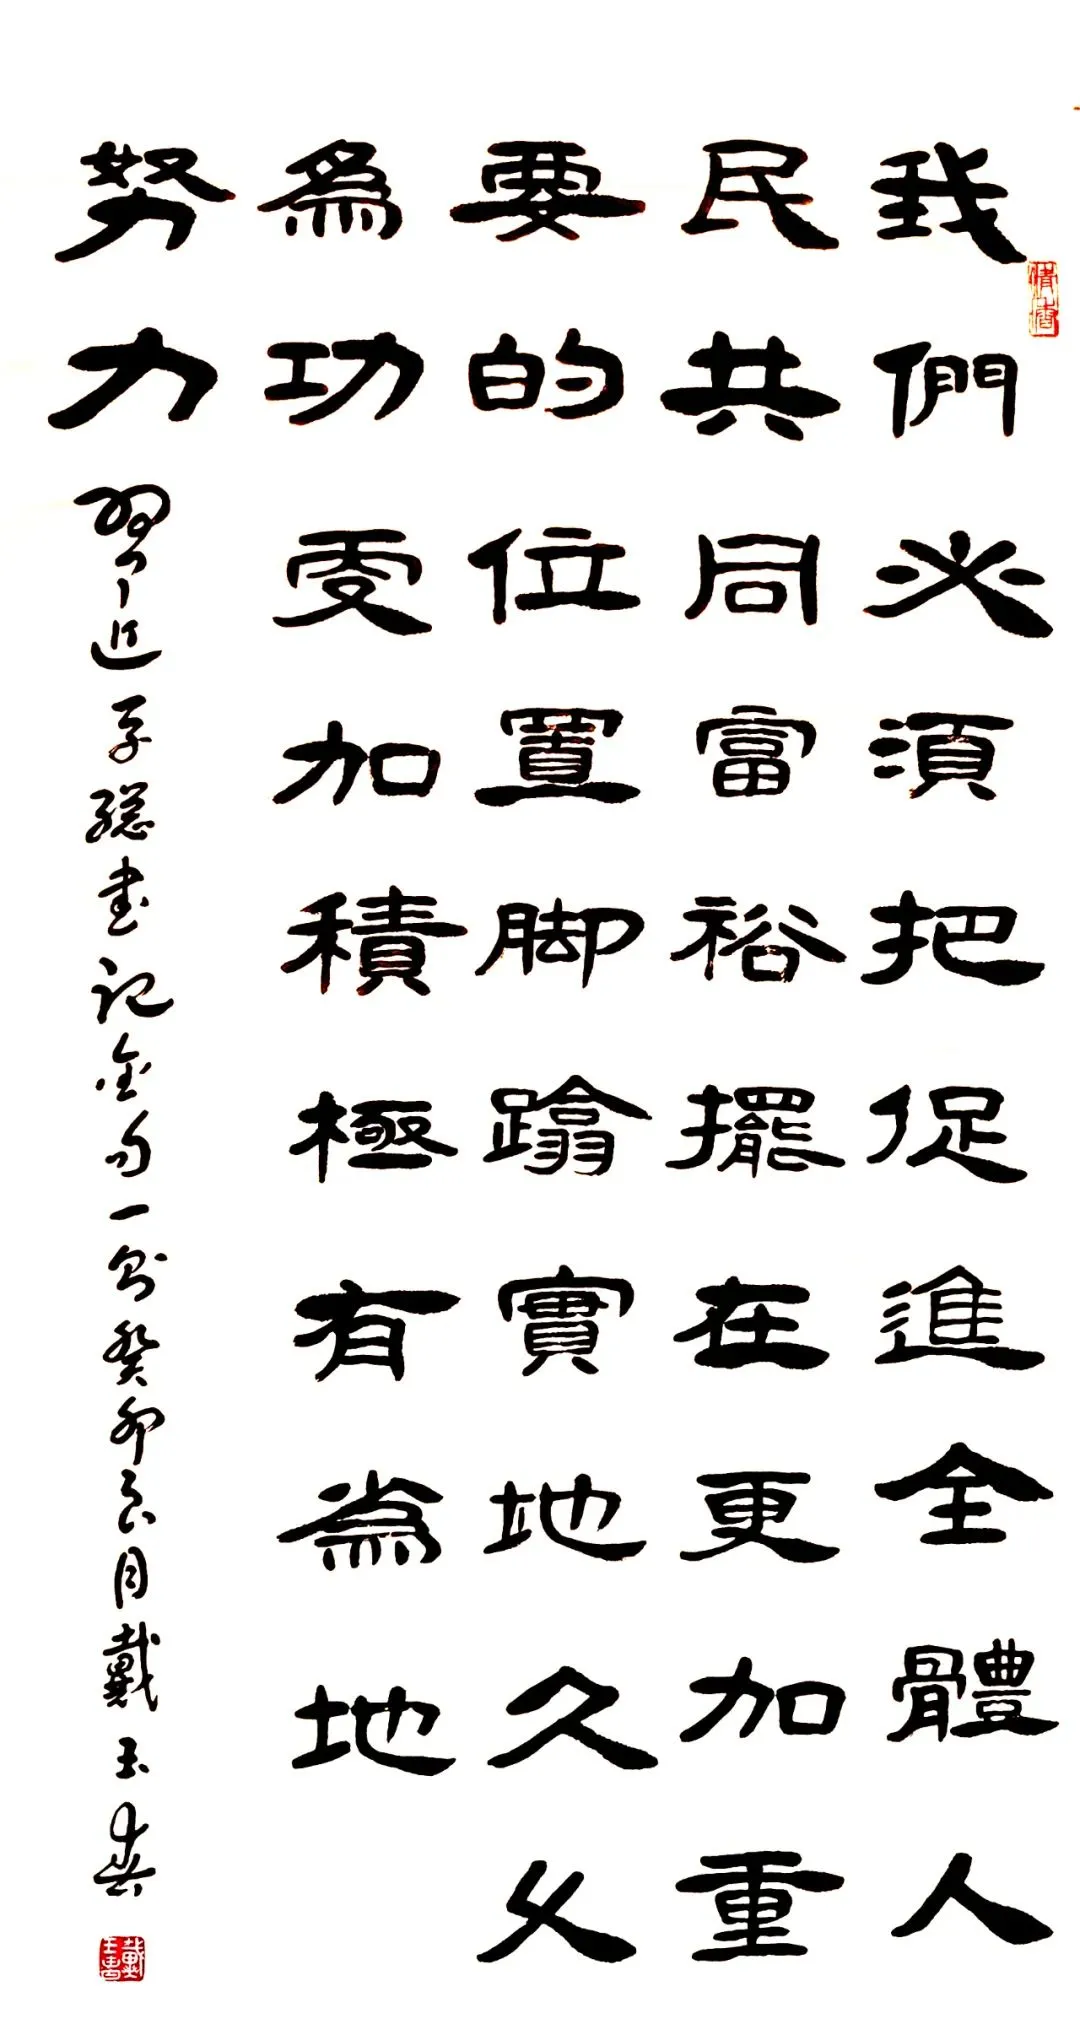 我們必須把促進全體人
民共同富裕擺在更加重
要的位置脚蹹實地久久
爲功更加積極有爲地
努力
習近平總書記金句一則癸卯良月戴玉